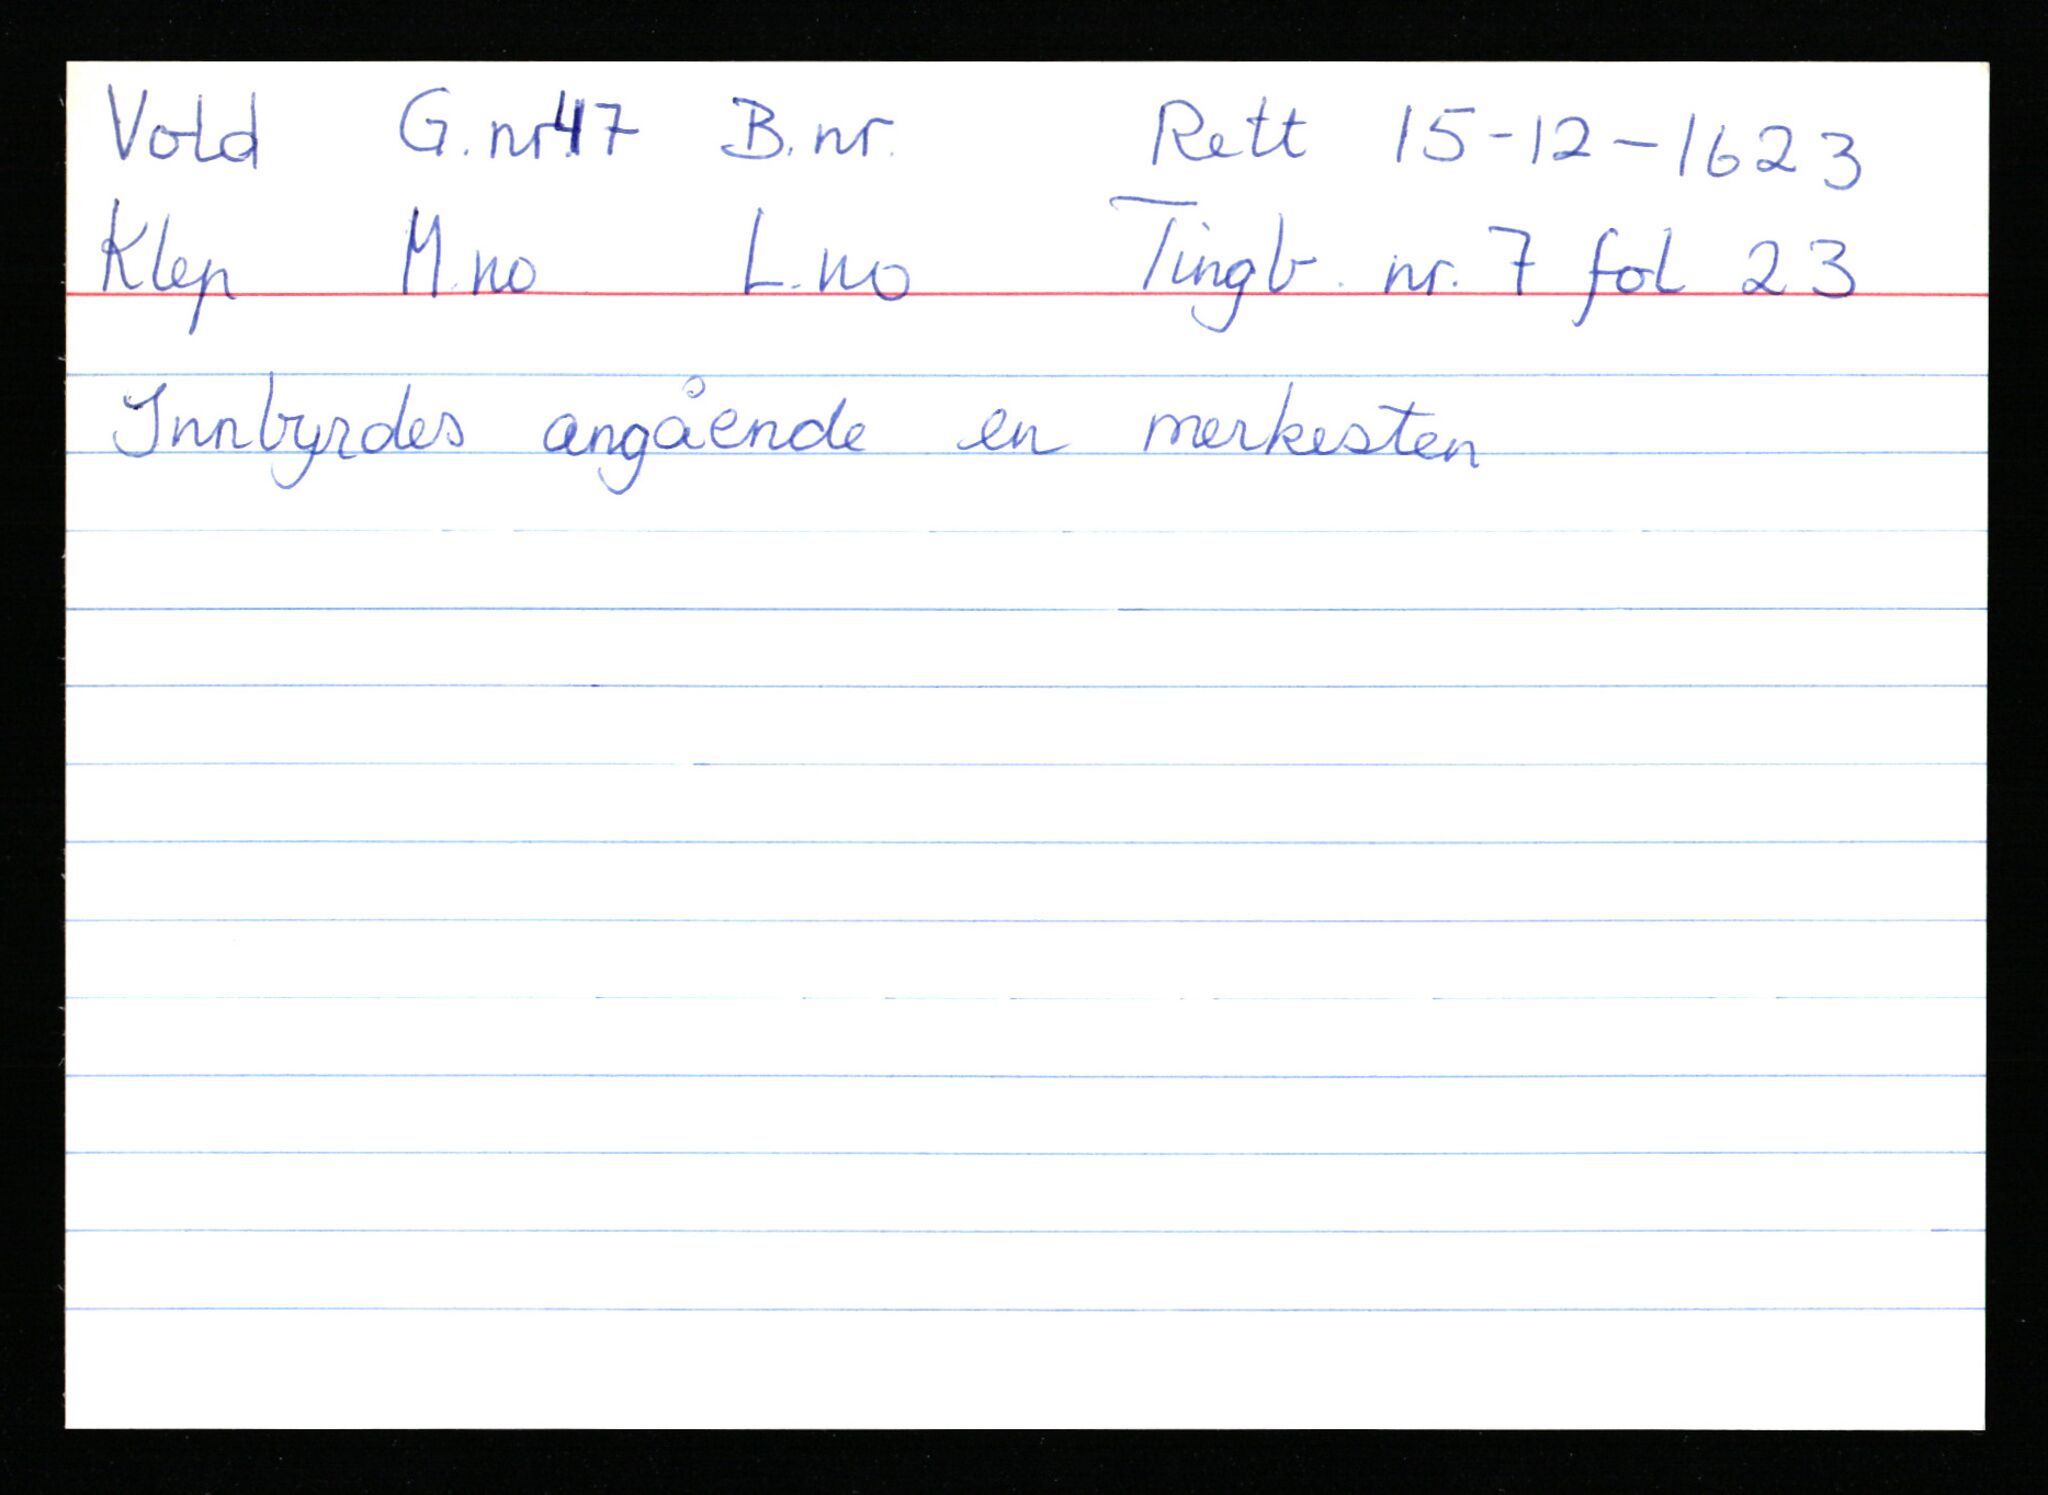 Vold G.nr.47 B.nr. Rett 15-12-1623
Klep M.no L.no Tingb. nr. 7 fol 23
Innbyrdes angående en merkesten